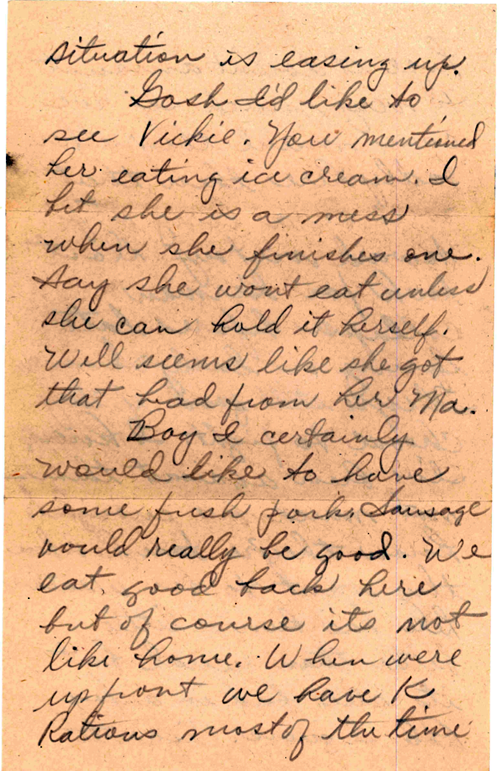 situation is easing up.
Gosh I'd like to
see Vickie. You mentioned
her eating ice cream. I
bet she is a mess
when she finishes one.
Say she wont eat unless
she can hold it herself.
Well seems like she got
that head from her Ma.
Boy I certainly
would like to have
some fresh pork. Sausage
would really be good. We
eat good back here
but of course its not
like home. When were
up front we have K
Rations most of the time